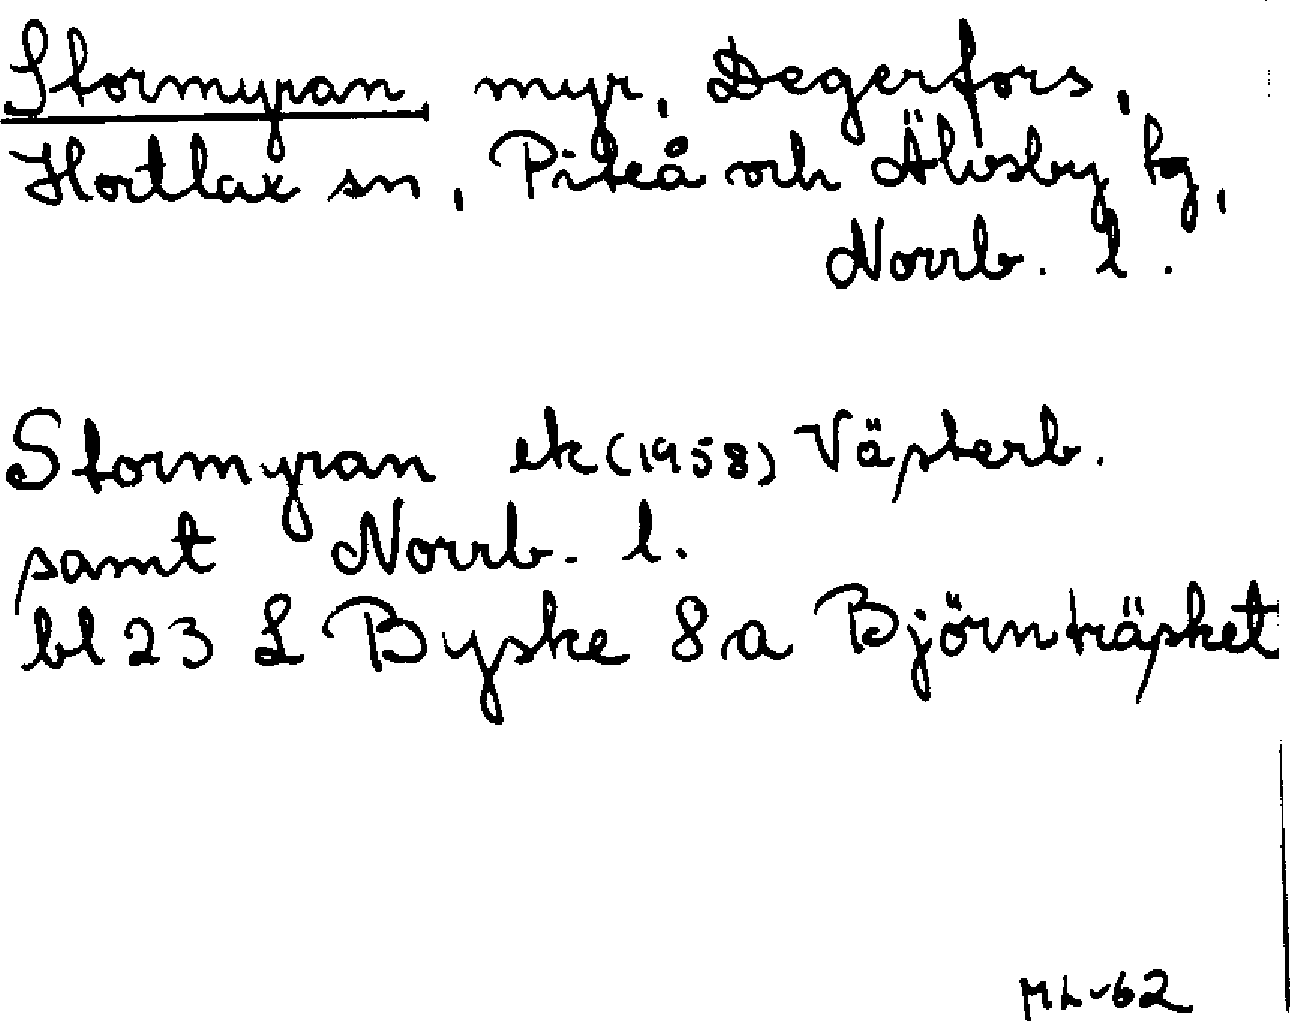 Stormyran myr, Degerfors,
Hortlax sn, Piteå och Älvsby tg,
Norrb. l.
Stormyran ek (1958) Västerb.
samt Norrb. l.
bl 23 L Byske 8 a Björnträsket
ML-62